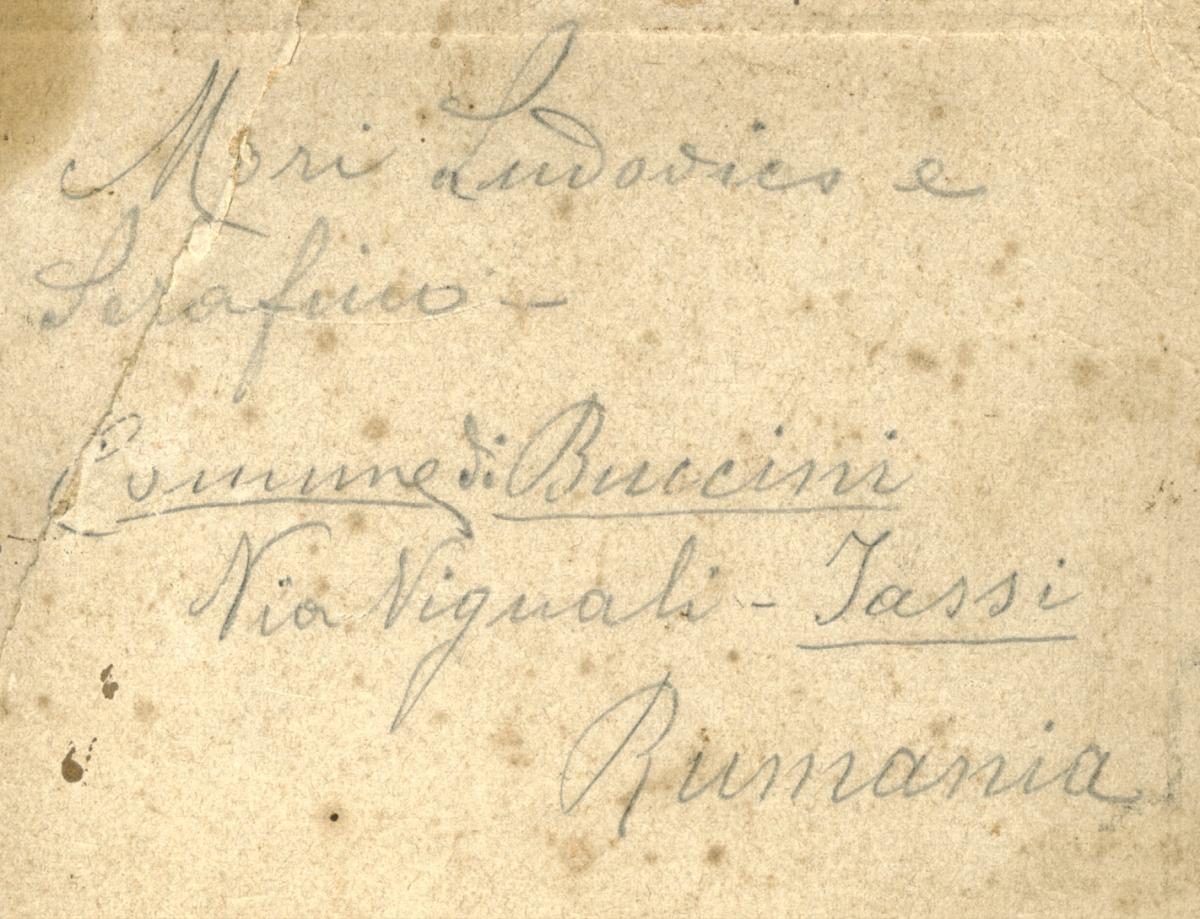 Mori Ludovico e
Serafino -
Comune di Buccini
Via Viguali - Jassi
Rumania